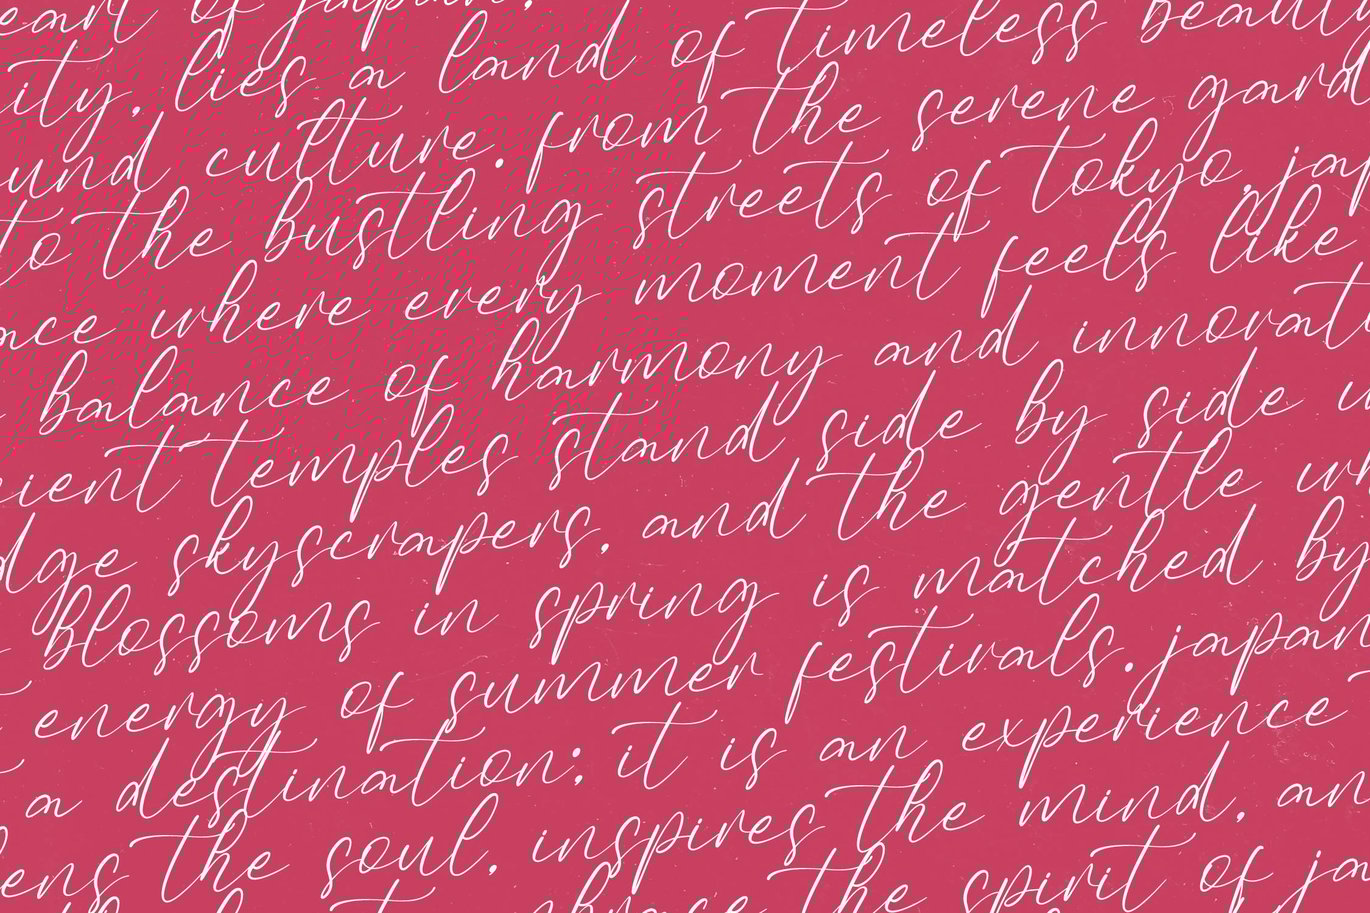 eart of japan,
ity, lies a land of timeless beauty
und culture. from the serene gard
to the bustling streets of tokyo, jap
nce where every moment feels like
balance of harmony and innovati
cient temples stand side by side w
dge skyscrapers, and the gentle wh
blossoms in spring is matched by
energy of summer festivals. japan
a destination; it is an experience t
ens the soul, inspires the mind, an
the spirit of ja